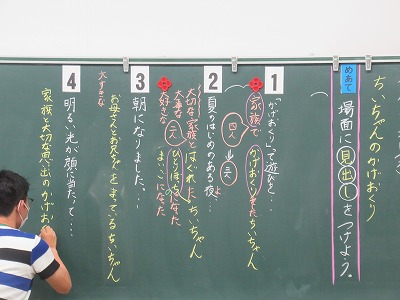 ちいちゃんのかげおくり
めあて
場面に見出しをつけよう。
1
「かげおくり」で遊びを…
家族でかげおくりをしたちいちゃん
四人→三人
2
夏のはじめのある夜、…
大切な家族とはぐれたちいちゃん
大事な 二人 ひとりぼっちになった
大好きな まいごになった
3
朝になりました。…
お母さんとお兄ちゃんをまっているちいちゃん
大すきな
4
明るい光が顔に当たって…
家族と大切な思い出のかげお